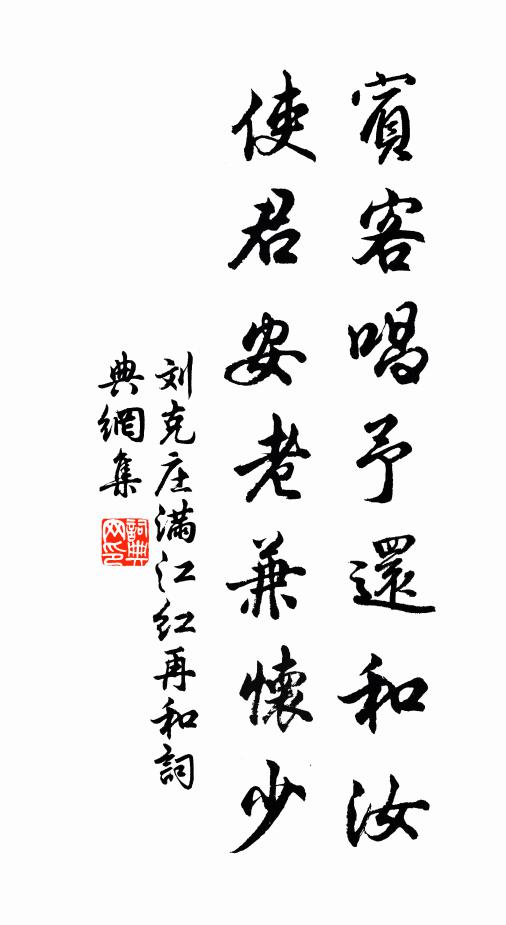 賓客唱予還和汝
使君安老兼懷少
刘克庄满江红再和詞
典網集
詞典
网印